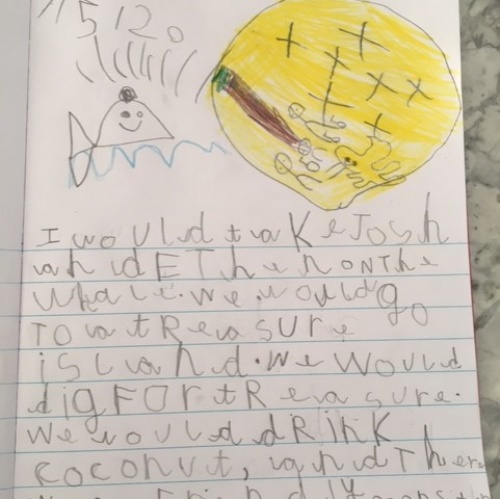 5120
I would take Josh
and EThen on The
whale. we. would go
To a tReasure
island. we would
dig FOR tReasure.
we would dRink
coconut, and Ther